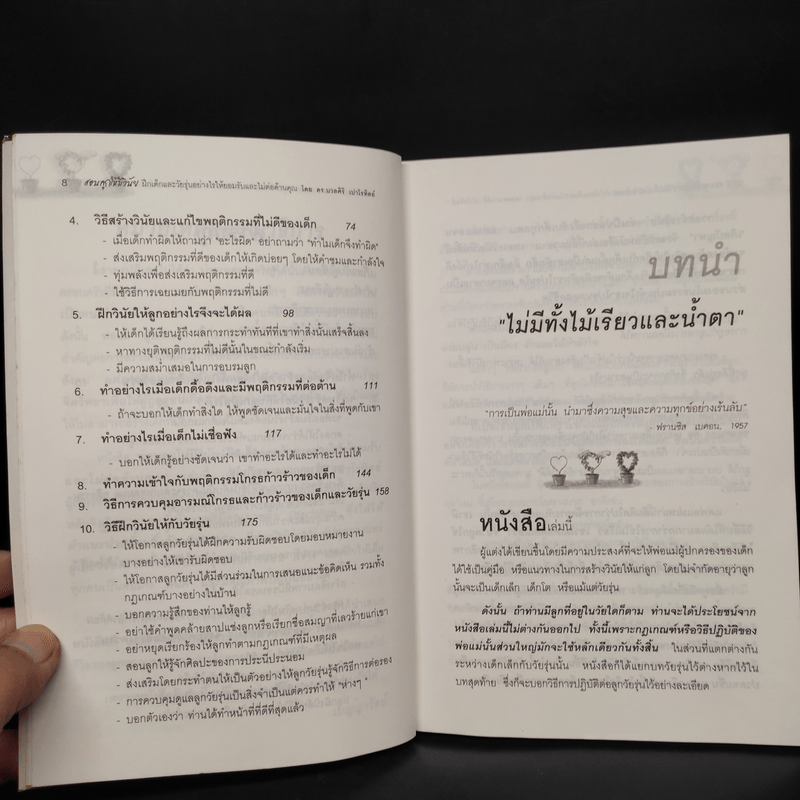 8 สอนลูกให้มีวินัย ฝึกเด็กและวัยรุ่นอย่างไรให้ยอมรับและไม่ต่อต้านคุณ โดย ดร.นวลศิริ เปาโรหิตย์
4. วิธีสร้างวินัยและแก้ไขพฤติกรรมที่ไม่ดีของเด็ก 74
- เมื่อเด็กทำผิดให้ถามว่า "อะไรผิด" อย่าถามว่า "ทำไมเด็กจึงทำผิด"
- ส่งเสริมพฤติกรรมที่ดีของเด็กให้เกิดบ่อยๆ โดยให้คำชมและกำลังใจ
- ทุ่มพลังเพื่อส่งเสริมพฤติกรรมที่ดี
- ใช้วิธีการเฉยเมยกับพฤติกรรมที่ไม่ดี
5. ฝึกวินัยให้ลูกอย่างไรจึงจะได้ผล 98
- ให้เด็กได้เรียนรู้ถึงผลการกระทำทันทีที่เขาทำสิ่งนั้นเสร็จสิ้นลง
- หาทางยุติพฤติกรรมที่ไม่ดีนั้นในขณะกำลังเริ่ม
- มีความสม่ำเสมอในการอบรมลูก
6. ทำอย่างไรเมื่อเด็กดื้อดึงและมีพฤติกรรมที่ต่อต้าน 111
- ถ้าจะบอกให้เด็กทำสิ่งใด ให้พูดชัดเจนและมั่นใจในสิ่งที่พูดกับเขา
7. ทำอย่างไรเมื่อเด็กไม่เชื่อฟัง 117
- บอกให้เด็กรู้อย่างชัดเจนว่า เขาทำอะไรได้และทำอะไรไม่ได้
8. ทำความเข้าใจกับพฤติกรรมโกรธก้าวร้าวของเด็ก 144
9. วิธีการควบคุมอารมณ์โกรธและก้าวร้าวของเด็กและวัยรุ่น 158
10. วิธีฝึกวินัยให้กับวัยรุ่น 175
- ให้โอกาสลูกวัยรุ่นได้ฝึกความรับผิดชอบโดยมอบหมายงาน
บางอย่างให้เขารับผิดชอบ
- ให้โอกาสลูกวัยรุ่นได้มีส่วนร่วมในการเสนอแนะข้อคิดเห็น รวมทั้ง
กฎเกณฑ์บางอย่างในบ้าน
- บอกความรู้สึกของท่านให้ลูกรู้
- อย่าใช้คำพูดคล้ายสาปแช่งลูกหรือเรียกชื่อสมญาที่เลวร้ายแก่เขา
- อย่าหยุดเรียกร้องให้ลูกทำตามกฎเกณฑ์ที่มีเหตุผล
- สอนลูกให้รู้จักศิลปะของการประนีประนอม
- ส่งเสริมโดยกระทำตนให้เป็นตัวอย่างให้ลูกวัยรุ่นรู้จักวิธีการต่อรอง
- การควบคุมดูแลลูกวัยรุ่นเป็นสิ่งจำเป็นแต่ควรทำให้ "ห่างๆ"
- บอกตัวเองว่า ท่านได้ทำหน้าที่ที่ดีที่สุดแล้ว
บทนำ
"ไม่มีทั้งไม้เรียวและน้ำตา"
"การเป็นพ่อแม่นั้น นำมาซึ่งความสุขและความทุกข์อย่างเร้นลับ"
- ฟรานซิส เบคอน, 1957
หนังสือเล่มนี้
ผู้แต่งได้เขียนขึ้นโดยมีความประสงค์ที่จะให้พ่อแม่ผู้ปกครองของเด็ก
ได้ใช้เป็นคู่มือ หรือแนวทางในการสร้างวินัยให้แก่ลูก โดยไม่จำกัดอายุว่าลูก
นั้นจะเป็นเด็กเล็ก เด็กโต หรือแม้แต่วัยรุ่น
ดังนั้น ถ้าท่านมีลูกที่อยู่ในวัยใดก็ตาม ท่านจะได้ประโยชน์จาก
หนังสือเล่มนี้ไม่ต่างกันออกไป ทั้งนี้เพราะกฎเกณฑ์หรือวิธีปฏิบัติของ
พ่อแม่นั้นส่วนใหญ่มักจะใช้หลักเดียวกันทั้งสิ้น ในส่วนที่แตกต่างกัน
ระหว่างเด็กเล็กกับวัยรุ่นนั้น หนังสือก็ได้แยกบทวัยรุ่นไว้ต่างหากไว้ใน
บทสุดท้าย ซึ่งก็จะบอกวิธีการปฏิบัติต่อลูกวัยรุ่นไว้อย่างละเอียด